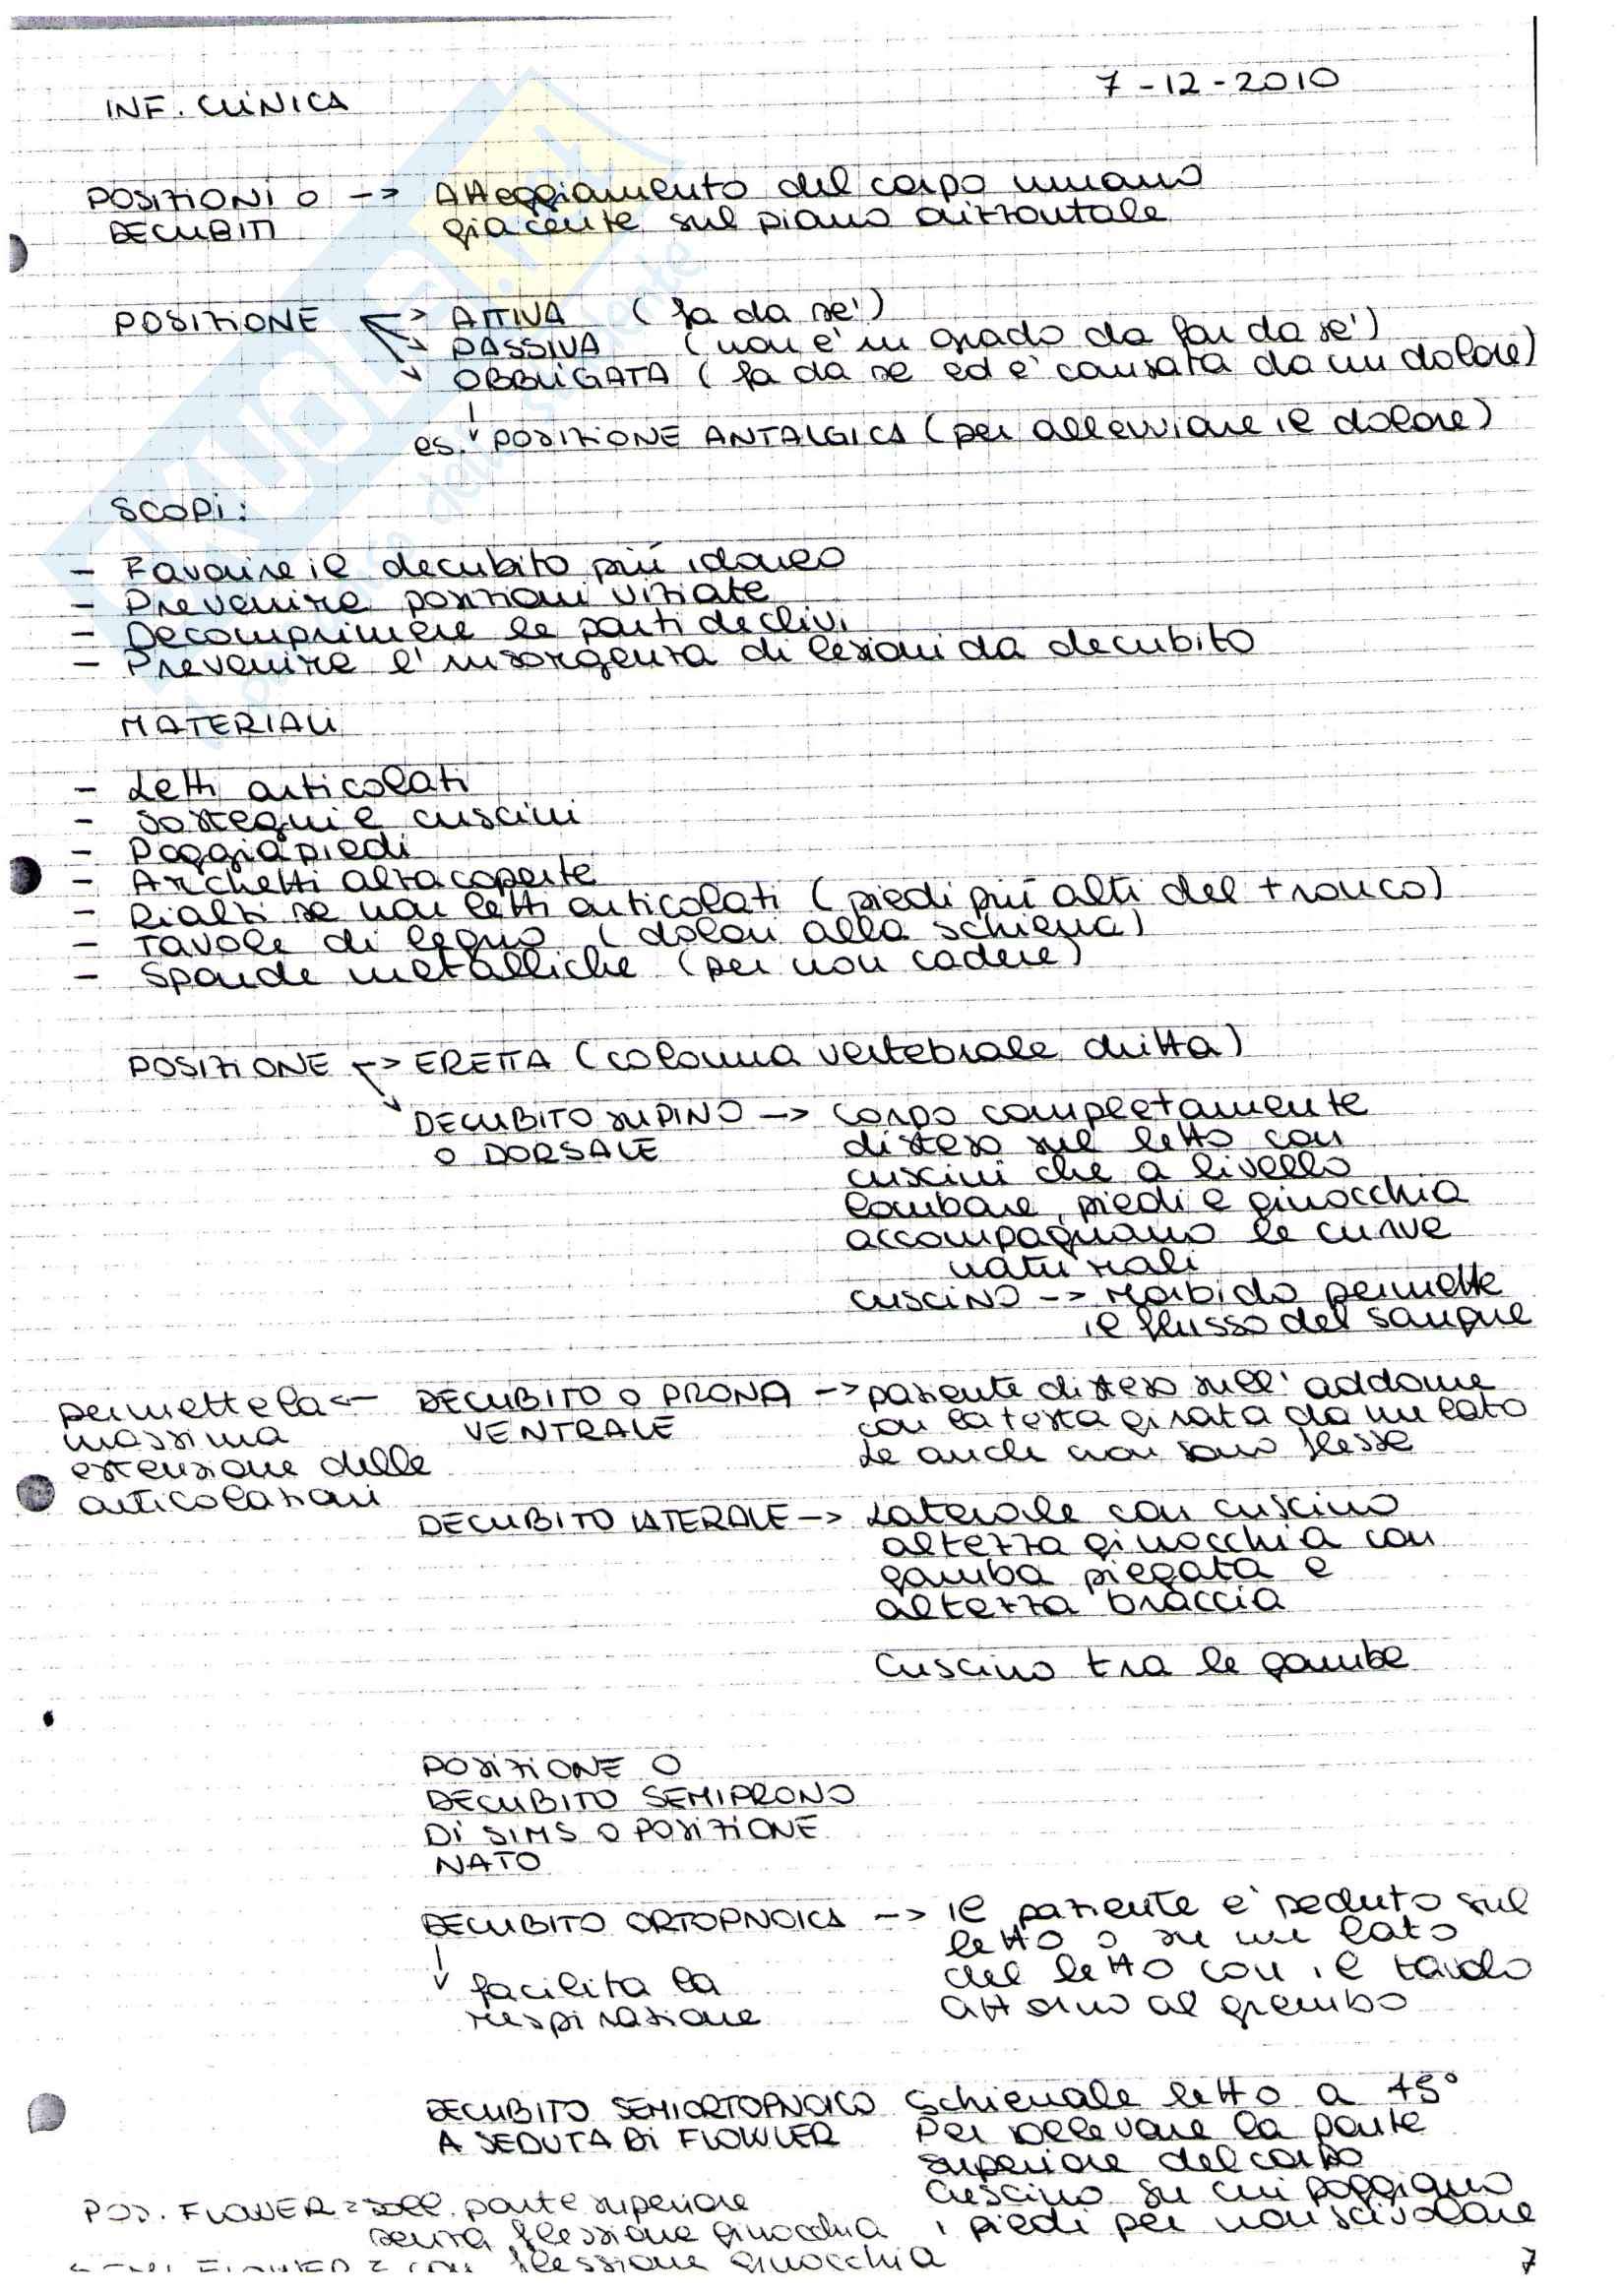 7-12-2010
INF. CLINICA
POSIZIONI O -> Atteggiamento del corpo umano
DECUBITI giacente sul piano orizzontale
POSIZIONE -> ATTIVA (fa da sé)
PASSIVA (non è in grado da far da sé)
OBBLIGATA (fa da se ed è causata da un dolore)
es. POSIZIONE ANTALGICA (per alleviare il dolore)
SCOPI:
- Favorire il decubito più idoneo
- Prevenire posizioni viziate
- Decomprimere le parti declivi
- Prevenire l'insorgenza di lesioni da decubito
MATERIALI
- Letti articolati
- Sostegni e cuscini
- Poggiapiedi
- Archetti alzacoperte
- Rialzi se non letti articolati (piedi più alti del tronco)
- Tavole di legno (dolori alla schiena)
- Sponde metalliche (per non cadere)
POSIZIONE -> ERETTA (colonna vertebrale dritta)
DECUBITO SUPINO -> Corpo completamente
O DORSALE disteso sul letto con
cuscini che a livello
lombare, piedi e ginocchia
accompagnano le curve
naturali
CUSCINO -> Morbido permette
il flusso del sangue
permette la <- DECUBITO O PRONA -> paziente disteso sull'addome
massima VENTRALE con la testa girata da un lato
estensione delle Le anche non sono flesse
articolazioni
DECUBITO LATERALE -> Laterale con cuscino
altezza ginocchia con
gamba piegata e
altezza braccia
Cuscino tra le gambe
POSIZIONE O
DECUBITO SEMIPRONO
DI SIMS O POSIZIONE
NATO
DECUBITO ORTOPNOICA -> il paziente è seduto sul
letto o su un lato
facilita la del letto con il tavolo
respirazione attorno al grembo
DECUBITO SEMIORTOPNOICO Schienale letto a 45°
A SEDUTA DI FLOWLER Per sollevare la parte
superiore del corpo
POS. FLOWER = soll. parte superiore Cuscino su cui poggiano
senza flessione ginocchia i piedi per non scivolare
FLOWER = con flessione ginocchia
7